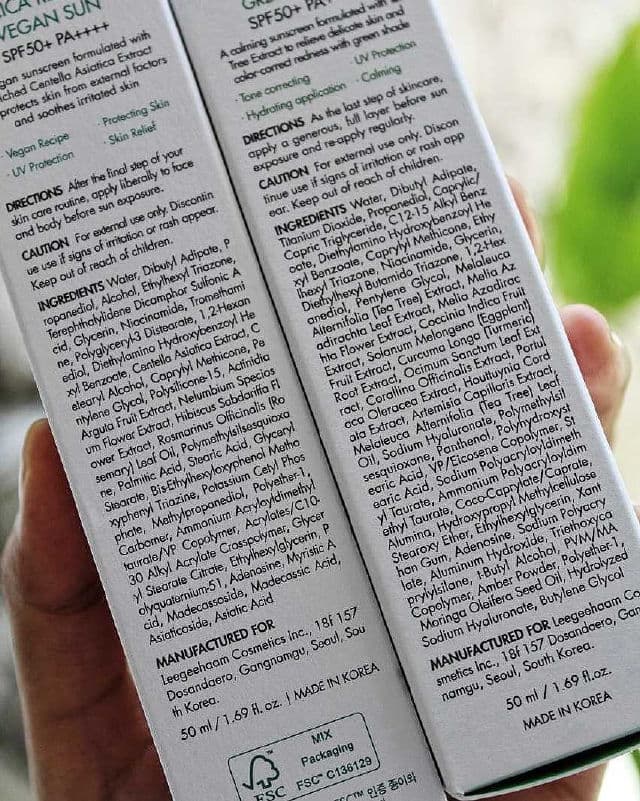 VEGAN SUN
SPF50+ PA++++
gan sunscreen formulated with
ched Centella Asiatica Extract
protects skin from external factors
and soothes irritated skin
· Vegan Recipe · Protecting Skin
· UV Protection · Skin Relief
DIRECTIONS After the final step of your
skin care routine, apply liberally to face
and body before sun exposure.
CAUTION For external use only. Discontin
ue use if signs of irritation or rash appear.
Keep out of reach of children.
INGREDIENTS Water, Dibutyl Adipate, P
ropanediol, Alcohol, Ethylhexyl Triazone,
Terephthalylidene Dicamphor Sulfonic A
cid, Glycerin, Niacinamide, Tromethami
ne, Polyglyceryl-3 Distearate, 1,2-Hexan
ediol, Diethylamino Hydroxybenzoyl He
xyl Benzoate, Centella Asiatica Extract, C
etearyl Alcohol, Caprylyl Methicone, Pe
ntylene Glycol, Polysilicone-15, Actinidia
Arguta Fruit Extract, Nelumbium Specios
um Flower Extract, Hibiscus Sabdariffa Fl
ower Extract, Rosmarinus Officinalis (Ro
semary) Leaf Oil, Polymethylsilsesquioxa
ne, Palmitic Acid, Stearic Acid, Glyceryl
Stearate, Bis-Ethylhexyloxyphenol Metho
xyphenyl Triazine, Potassium Cetyl Phos
phate, Methylpropanediol, Polyether-1,
Carbomer, Ammonium Acryloyldimethyl
taurate/VP Copolymer, Acrylates/C10-
30 Alkyl Acrylate Crosspolymer, Glycer
yl Stearate Citrate, Ethylhexylglycerin, P
olyquaternium-51, Adenosine, Myristic A
cid, Madecassoside, Madecassic Acid,
Asiaticoside, Asiatic Acid
MANUFACTURED FOR
Leegeehaam Cosmetics Inc., 18f 157
Dosandaero, Gangnamgu, Seoul, Sou
th Korea.
50 ml / 1.69 fl. oz. | MADE IN KOREA
MIX
Packaging
FSC FSC™ C136129
SPF50+ PA+
A calming sunscreen formulated with
Tree Extract to relieve delicate skin and
color-correct redness with green shade
· Tone correcting · UV Protection
· Hydrating application · Calming
DIRECTIONS As the last step of skincare,
apply a generous, full layer before sun
exposure and re-apply regularly.
CAUTION For external use only. Discon
tinue use if signs of irritation or rash app
ear. Keep out of reach of children.
INGREDIENTS Water, Dibutyl Adipate,
Titanium Dioxide, Propanediol, Caprylic/
Capric Triglyceride, C12-15 Alkyl Benz
oate, Diethylamino Hydroxybenzoyl He
xyl Benzoate, Caprylyl Methicone, Ethy
lhexyl Triazone, Niacinamide, Glycerin,
Diethylhexyl Butamido Triazone, 1,2-Hex
anediol, Pentylene Glycol, Melaleuca
Alternifolia (Tea Tree) Extract, Melia Az
adirachta Leaf Extract, Melia Azadirac
hta Flower Extract, Coccinia Indica Fruit
Extract, Solanum Melongena (Eggplant)
Fruit Extract, Curcuma Longa (Turmeric)
Root Extract, Ocimum Sanctum Leaf Ext
ract, Corallina Officinalis Extract, Portul
aca Oleracea Extract, Houttuynia Cord
ata Extract, Artemisia Capillaris Extract,
Melaleuca Alternifolia (Tea Tree) Leaf
Oil, Sodium Hyaluronate, Polymethylsil
sesquioxane, Panthenol, Polyhydroxyst
earic Acid, VP/Eicosene Copolymer, St
earic Acid, Sodium Polyacryloyldimeth
yl Taurate, Ammonium Polyacryloyldim
ethyl Taurate, Coco-Caprylate/Caprate,
Alumina, Hydroxypropyl Methylcellulose
Stearoxy Ether, Ethylhexylglycerin, Xant
han Gum, Adenosine, Sodium Polyacry
late, Aluminum Hydroxide, Triethoxyca
prylylsilane, t-Butyl Alcohol, PVM/MA
Copolymer, Amber Powder, Polyether-1
Moringa Oleifera Seed Oil, Hydrolyzed
Sodium Hyaluronate, Butylene Glycol
MANUFACTURED FOR Leegeehaam Co
smetics Inc., 18f 157 Dosandaero, Gan
namgu, Seoul, South Korea.
50 ml / 1.69 fl.oz.
MADE IN KOREA